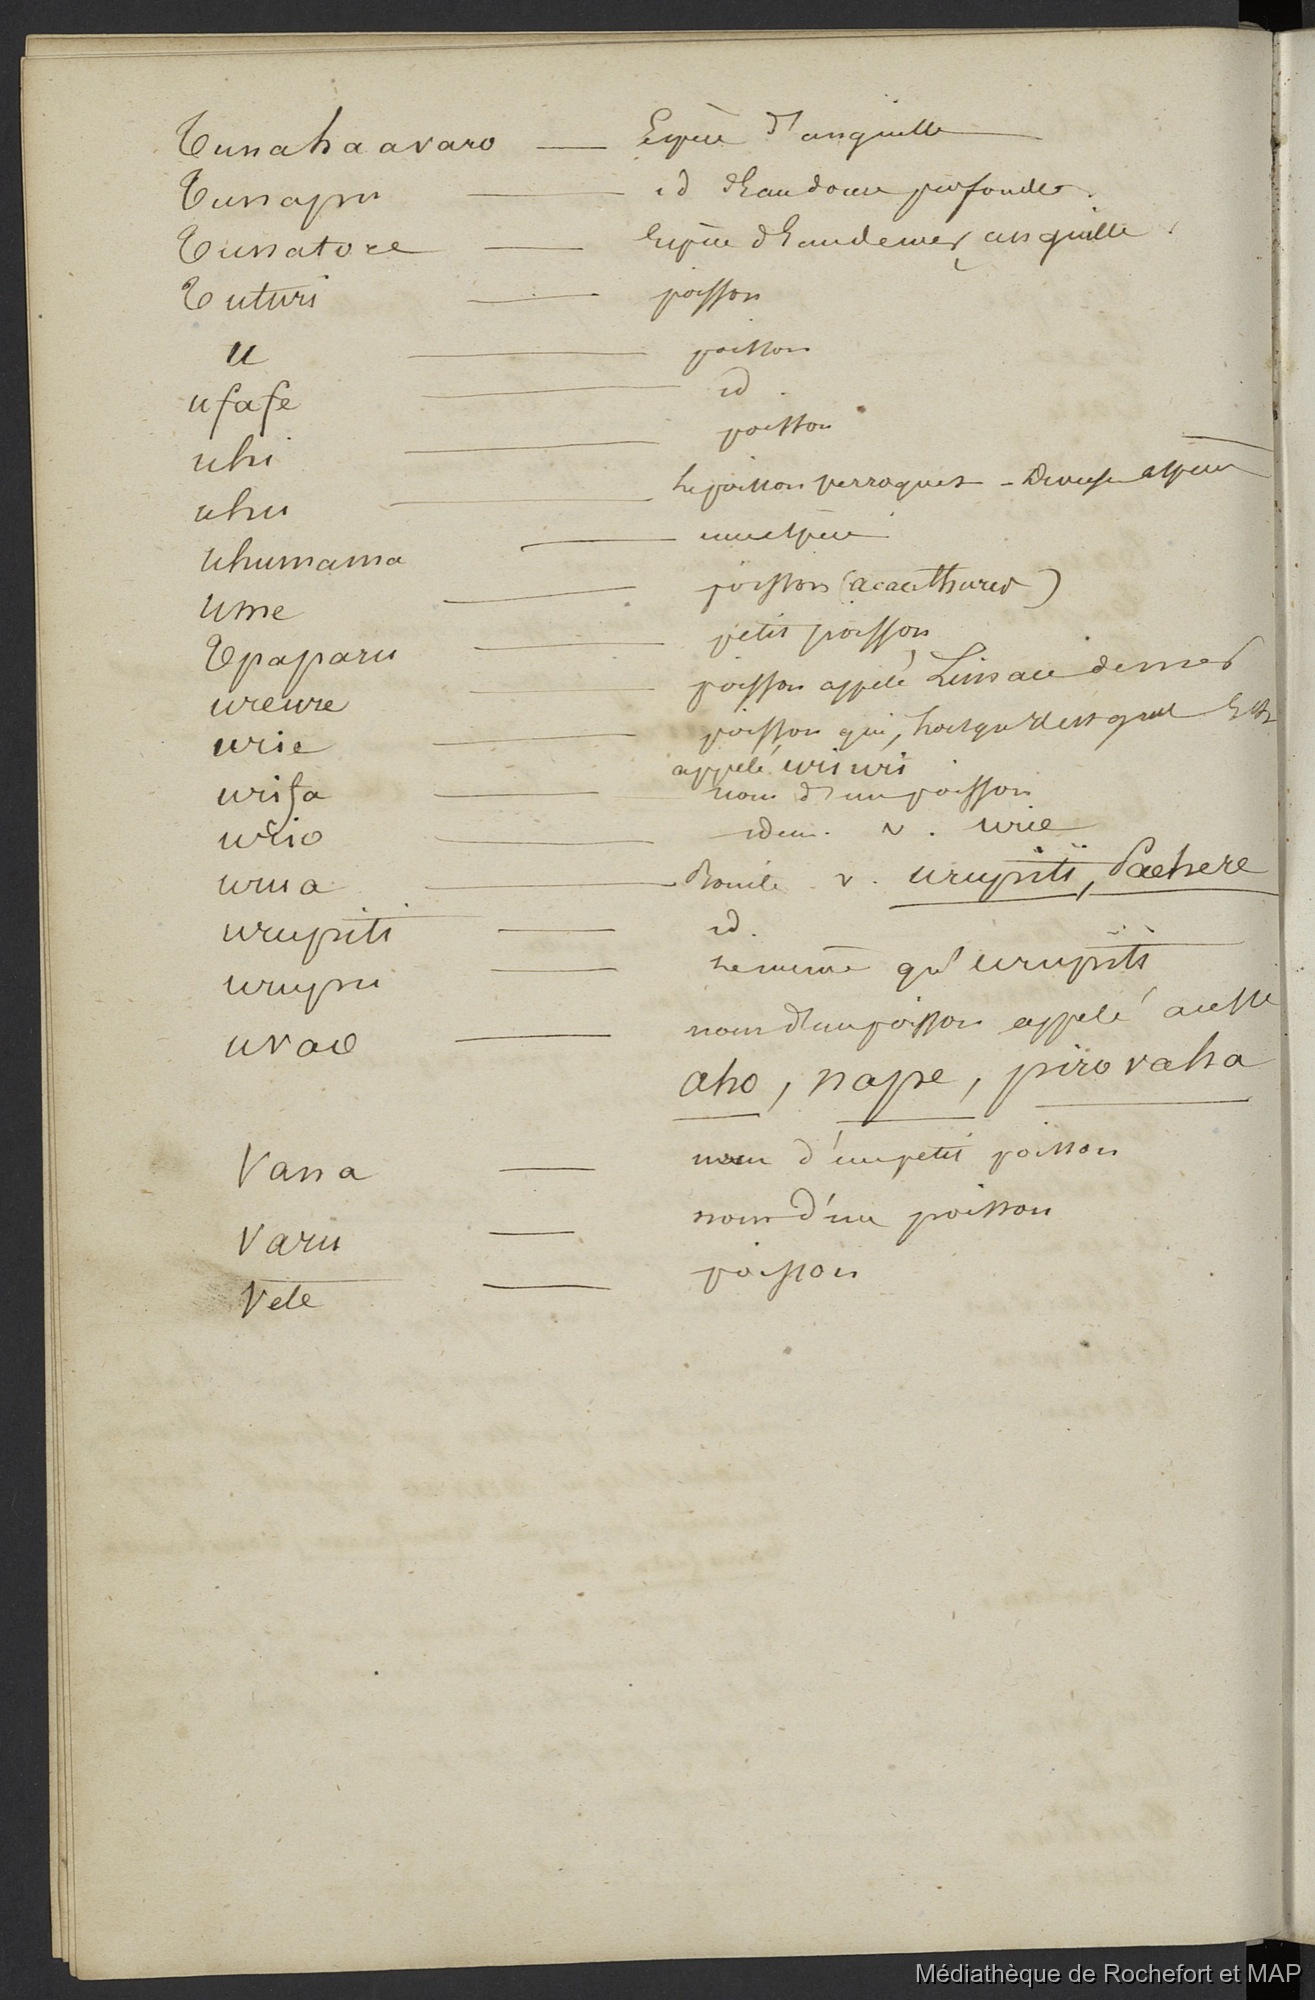 Tunahaavaro — Espèce d'anguille
Tunapu — id d'Eau douce profonde.
Tunatore — Espèce d'Eau de mer, anguille
Tuturi — poisson
u — poisson
ufafe — id.
uhi — poisson
uhu — Le poisson perroquet - Diverses espèces
uhumama — une espèce
ume — poisson (acanthure)
Tpaparu — petit poisson
ureure — poisson appelé Limace de mer
urie — poisson qui, lorsqu'il est grand Est
appelé uriuri
urifa — nom d'un poisson
urio — idem. v. urie
urua — v. urupiti, Paehere
urupiti — id.
urupu — le même qu'urupiti
uvae — nom d'un poisson appelé aussi
aho, nape, pirovaha
Vana — nom d'un petit poisson
Varu — nom d'un poisson
Vete — poisson
Médiathèque de Rochefort et MAP